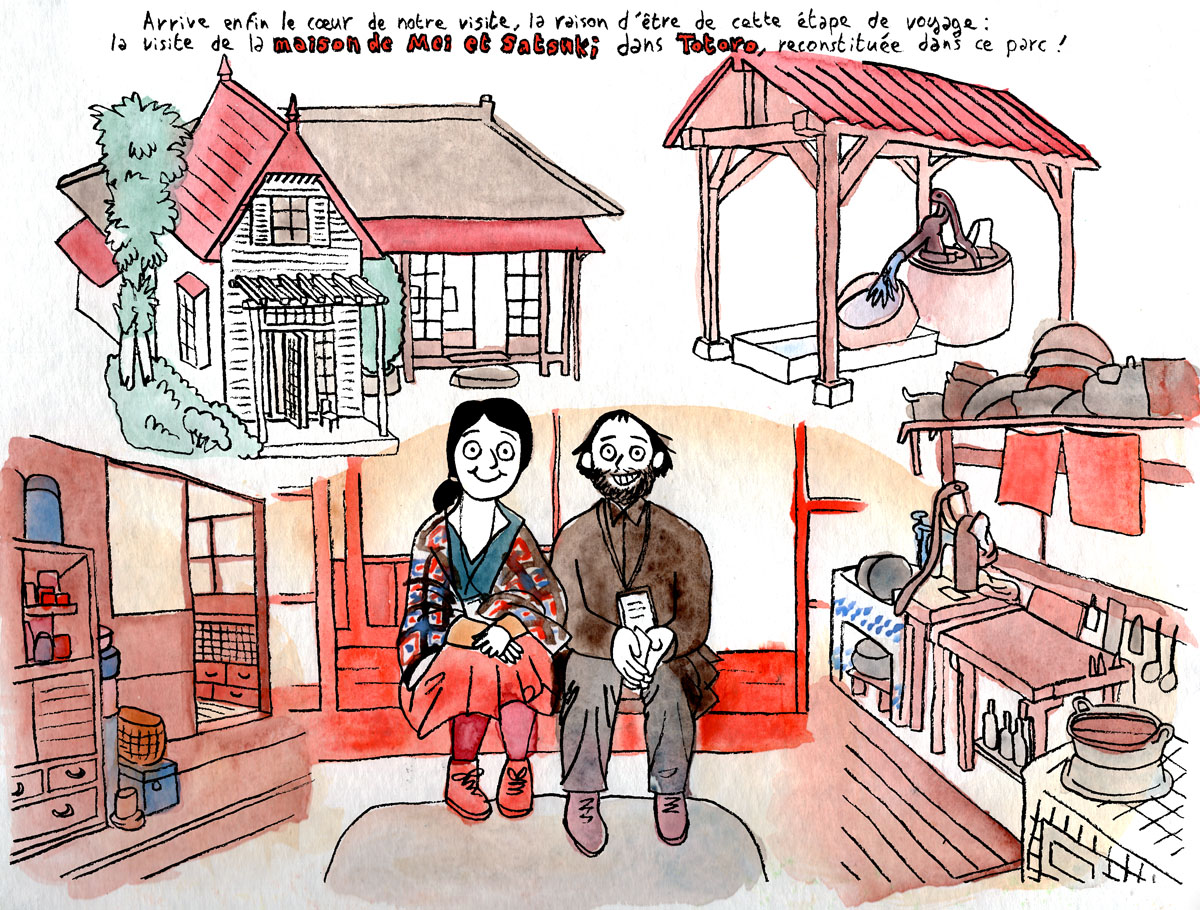 Arrive enfin le cœur de notre visite, la raison d'être de cette étape de voyage :
la visite de la maison de Mei et Satsuki dans Totoro, reconstituée dans ce parc !